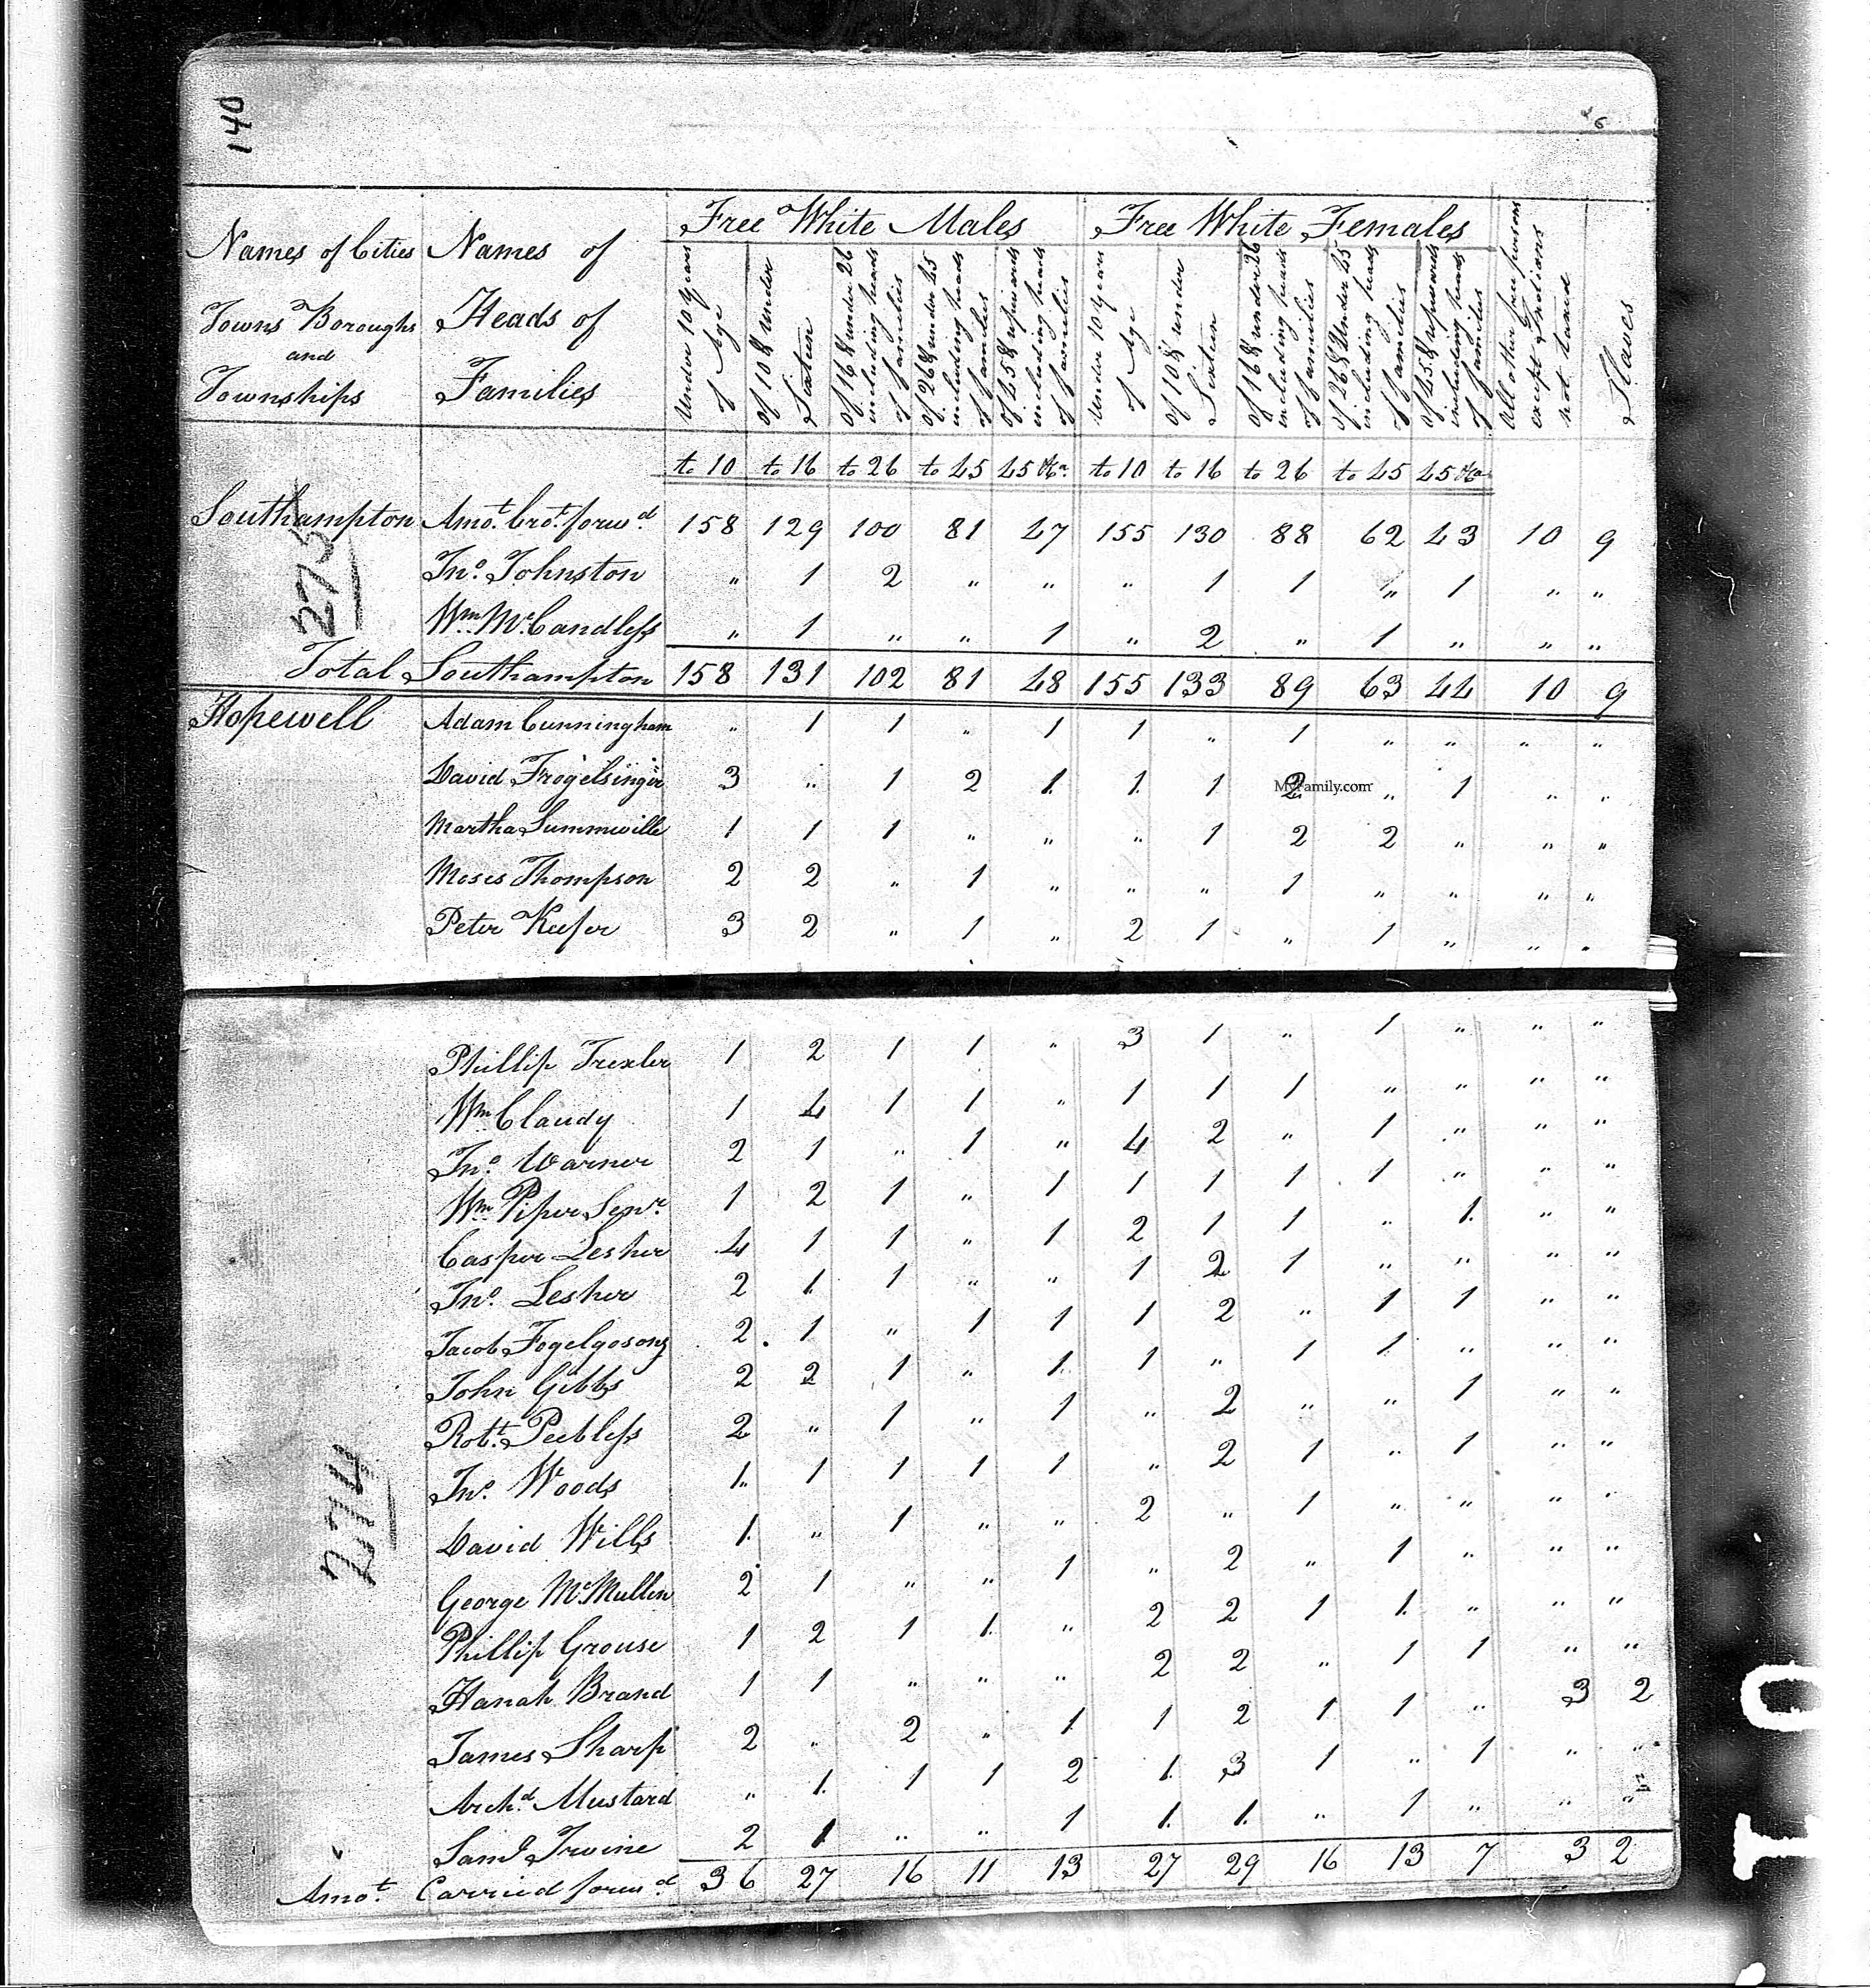 140
6
Names of Cities Towns Boroughs and Townships
Names of Heads of Families
Free White Males
Free White Females
Under 10 Years of Age
Of 10 & under Sixteen
Of 16 & under 26 including heads of families
Of 26 & under 45 including heads of families
Of 45 & upwards including heads of families
Under 10 Years of Age
Of 10 & under Sixteen
Of 16 & under 26 including heads of families
Of 26 & Under 45 including heads of families
Of 45 & upwards including heads of families
All other free persons except Indians not taxed
Slaves
to 10 to 16 to 26 to 45 45 &c. to 10 to 16 to 26 to 45 45 &c
Southampton Amot. brot. forwd. 158 129 100 81 47 155 130 88 62 43 10 9
275
Jno. Johnston " 1 2 " " " 1 1 " 1 " "
Wm. McCandless " 1 " " 1 " 2 " 1 " " "
Total Southampton 158 131 102 81 48 155 133 89 63 44 10 9
Hopewell Adam Cunningham " 1 1 " 1 1 " 1 " " " "
David Frogelsinger 3 " 1 2 1 1 1 2 " 1 " "
MyFamily.com
Martha Summwille 1 1 1 " " " 1 2 2 " " "
Moses Thompson 2 2 " 1 " " " 1 " " " "
Peter Keefer 3 2 " 1 " 2 1 " 1 " " "
Phillip Trexler 1 2 1 1 " 3 1 " 1 " " "
Wm Claudy 1 4 1 1 " 1 1 1 " " " "
Jno. Warner 2 1 " 1 " 4 2 " 1 " " "
Wm. Piper Senr. 1 2 1 " 1 1 1 1 1 " " "
Casper Lesher 4 1 1 " 1 2 1 1 " 1 " "
Jno. Lesher 2 1 1 " " 1 2 1 " " " "
Jacob Fogelgosong 2 1 " 1 1 1 2 " 1 1 " "
John Gibbs 2 2 1 " 1 1 " 1 1 " " "
Robt. Peebless 2 " 1 " 1 " 2 " " 1 " "
Jno. Woods 1 1 1 1 1 " 2 1 " 1 " "
David Wills 1 " 1 " " 2 " 1 " " " "
George McMullen 2 1 " " 1 " 2 " 1 " " "
274
Phillip Grouse 1 2 1 1 " 2 2 1 1 " " "
Hanah Brand 1 1 " " " 2 2 " 1 1 " "
James Sharp 2 " 2 " 1 1 2 1 1 " 3 2
Archd. Mustard " 1 1 1 2 1 3 1 " 1 " "
Saml. Irvine 2 1 " " 1 1 1 " 1 " " "
Amot. Carried forwd 36 27 16 11 13 27 29 16 13 7 3 2